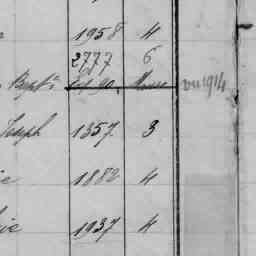 1958 4
2777 6
Bapt^e
vu 1914
Joseph 1357 3
ie 1882 4
ie 1937 4